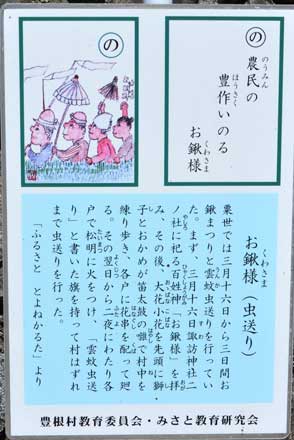 の
の
農民の
のうみん
豊作いのる
ほうさく
お鍬様
くわさま
お鍬様（虫送り）
くわさま
粟世では三月十六日から三日間お
鍬まつりと雲蚊虫送りを行ってい
た。まず、三月十六日諏訪神社二
ノ社に祀る百姓神「お鍬様」を拝
み、その後、大花・小花を先頭に獅
子とおかめが笛太鼓の囃で村中を
練り歩き、各戸に花串を配って廻
る。その翌日から二夜にわたり各
戸で松明に火をつけ、「雲蚊虫送
り」と書いた旗を持って村はずれ
まで虫送りを行った。
「ふるさと とよねかるた」より
豊根村教育委員会・みさと教育研究会